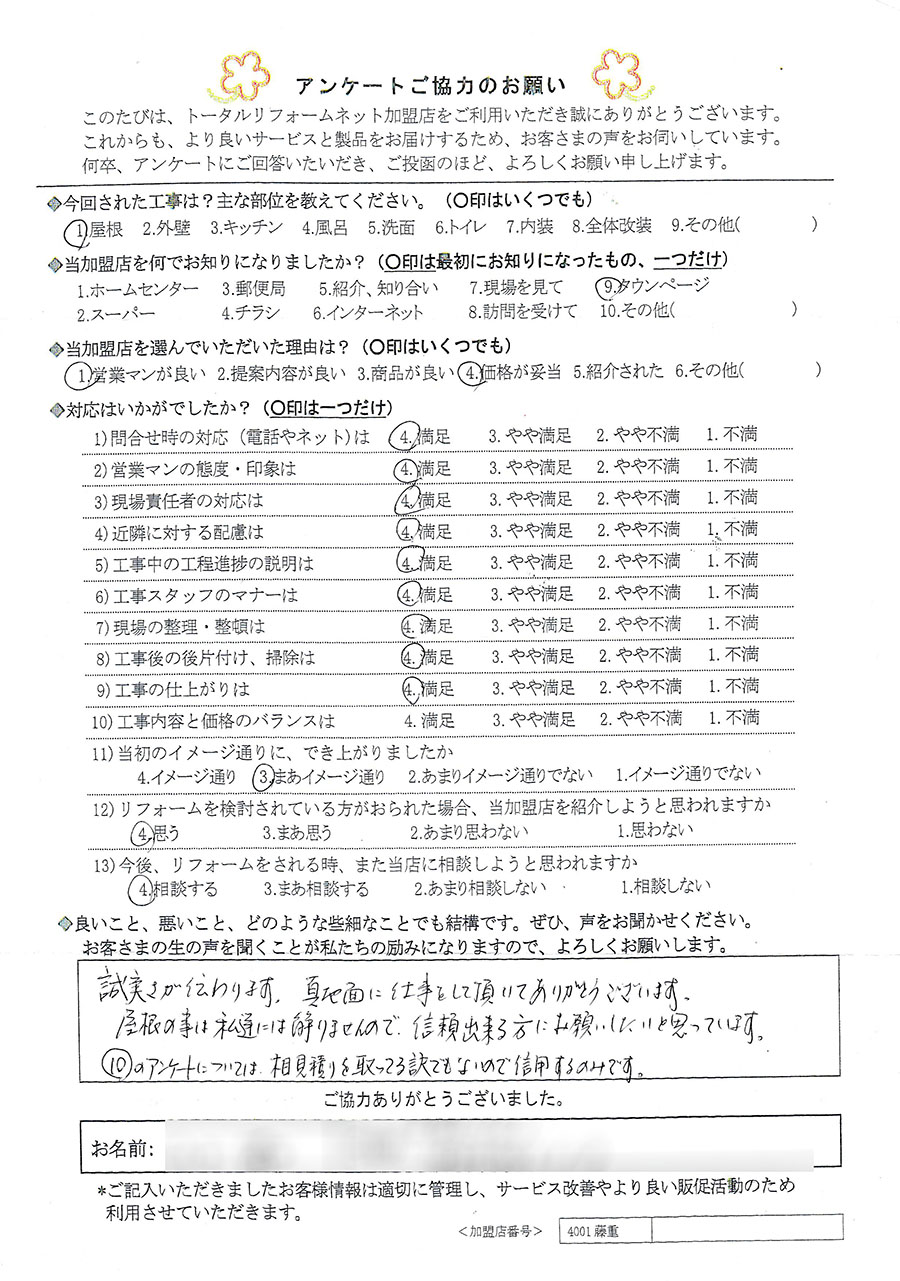 アンケートご協力のお願い
このたびは、トータルリフォームネット加盟店をご利用いただき誠にありがとうございます。
これからも、より良いサービスと製品をお届けするため、お客さまの声をお伺いしています。
何卒、アンケートにご回答いたいだき、ご投函のほど、よろしくお願い申し上げます。
◆今回された工事は？主な部位を教えてください。（〇印はいくつでも）
1.屋根 2.外壁 3.キッチン 4.風呂 5.洗面 6.トイレ 7.内装 8.全体改装 9.その他( )
◆当加盟店を何でお知りになりましたか？（〇印は最初にお知りになったもの、一つだけ）
1.ホームセンター 3.郵便局 5.紹介、知り合い 7.現場を見て 9.タウンページ
2.スーパー 4.チラシ 6.インターネット 8.訪問を受けて 10.その他( )
◆当加盟店を選んでいただいた理由は？（〇印はいくつでも）
1.営業マンが良い 2.提案内容が良い 3.商品が良い 4.価格が妥当 5.紹介された 6.その他( )
◆対応はいかがでしたか？（〇印は一つだけ）
1)問合せ時の対応（電話やネット)は 4.満足 3.やや満足 2.やや不満 1.不満
2)営業マンの態度・印象は 4.満足 3.やや満足 2.やや不満 1.不満
3)現場責任者の対応は 4.満足 3.やや満足 2.やや不満 1.不満
4)近隣に対する配慮は 4.満足 3.やや満足 2.やや不満 1.不満
5)工事中の工程進捗の説明は 4.満足 3.やや満足 2.やや不満 1.不満
6)工事スタッフのマナーは 4.満足 3.やや満足 2.やや不満 1.不満
7)現場の整理・整頓は 4.満足 3.やや満足 2.やや不満 1.不満
8)工事後の後片付け、掃除は 4.満足 3.やや満足 2.やや不満 1.不満
9)工事の仕上がりは 4.満足 3.やや満足 2.やや不満 1.不満
10)工事内容と価格のバランスは 4.満足 3.やや満足 2.やや不満 1.不満
11)当初のイメージ通りに、でき上がりましたか
4.イメージ通り 3.まあイメージ通り 2.あまりイメージ通りでない 1.イメージ通りでない
12)リフォームを検討されている方がおられた場合、当加盟店を紹介しようと思われますか
4.思う 3.まあ思う 2.あまり思わない 1.思わない
13)今後、リフォームをされる時、また当店に相談しようと思われますか
4.相談する 3.まあ相談する 2.あまり相談しない 1.相談しない
◆良いこと、悪いこと、どのような些細なことでも結構です。ぜひ、声をお聞かせください。
お客さまの生の声を聞くことが私たちの励みになりますので、よろしくお願いします。
誠実さが伝わります。真地面に仕事をして頂いてありがとうございます。
屋根の事は私達には解りませんので、信頼出来る方にお願いしたいと思っています。
⑩のアンケートについては、相見積りを取ってる訳でもないので信用するのみです。
ご協力ありがとうございました。
お名前:
*ご記入いただきましたお客様情報は適切に管理し、サービス改善やより良い販促活動のため
利用させていただきます。
＜加盟店番号＞ 4001 藤重